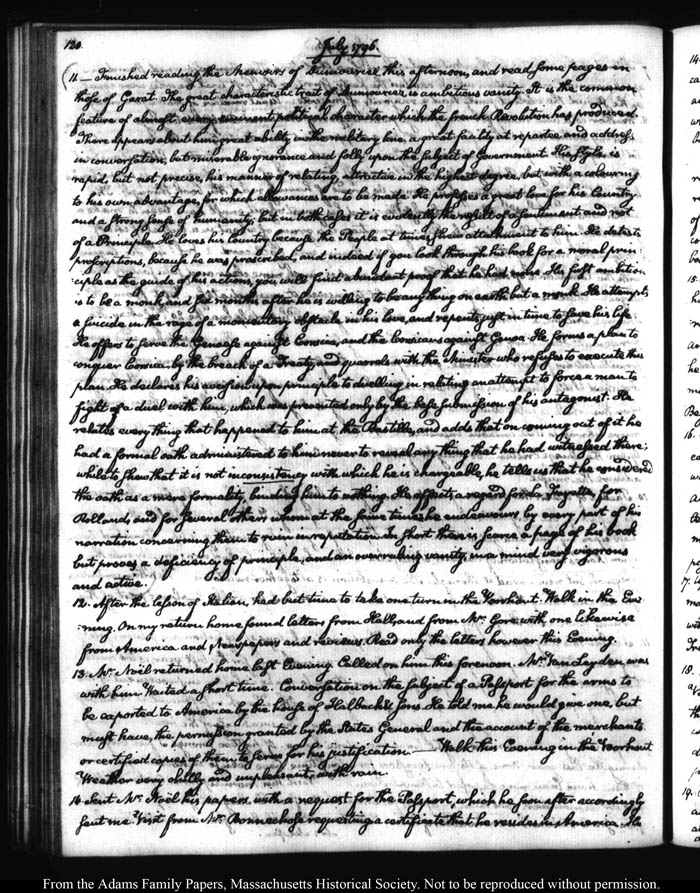 120. July 1796.
11. — Finished reading the Memoirs of Dumouriez this afternoon, and read some pages in
those of Garat. The great characteristic trait of Dumouriez is ambitious vanity. It is the common
feature of almost every eminent political character which the french Revolution has produced.
There appears about him great ability in the military line, a great facility at repartee and address
in conversation, but miserable ignorance and folly upon the subject of Government. His style is
rapid, but not precise, his manner of relating, attractive in the highest degree, but with a colouring
to his own advantage, for which allowances are to be made. He professes a great love for his Country
and a strong sense of humanity, but in both cases it is evidently the result of a sentiment and not
of a Principle. He loves his country because the People at times shew attachment to him. He detests
proscriptions, because he was proscribed, and indeed if you look through his book for a moral prin-
ciple as the guide of his actions, you will find abundant proof that he had none. His first ambition
is to be a monk, and six months after he is willing to be any thing on earth but a monk. He attempts
a suicide in the rage of a momentary obstacle in his love, and repents just in time to save his life.
He offers to serve the Genoese against Corsica, and the Corsicans against Genoa. He forms a plan to
conquer Corsica by the breach of a Treaty, and quarrels with the Minister who refuses to execute this
plan. He declares his aversion upon principle to duelling in relating an attempt to force a man to
fight a duel with him, which was prevented only by the base submission of his antagonist. He
relates every thing that happened to him at the Bastille, and adds that on coming out of it he
had a formal oath administered to him never to reveal any thing that he had witnessed there;
while to shew that it is not inconsistency with which he is chargeable, he tells us that he considered
the oath as a mere formality, binding him to nothing. He affects a regard for la Fayette, for
Rolland, and for several others whom at the same time he endeavours by every part of his
narration concerning them to ruin in reputation. In short there is scarce a page of his book
but proves a deficiency of principle, and an overruling vanity, in a mind very vigorous
and active.
12. After the lesson of Italian, had but time to take one turn in the Voorhout. Walk in the Eve-
ning. On my return home found letters from Hall, and from Mr. Gore, with one likewise
from America and Newspapers and reviews. Read only the letters however this Evening.
13. Mr. Noël returned home last Evening. Called on him this forenoon. Mr. Van Leyden was
with him. Waited a short time. Conversation on the subject of a Passport for the arms to
be exported to America by the house of Halbach & Sons. He told me he would give one, but
must have, the permission granted by the States General and the account of the merchants
or certified copies of them to serve for his justification. — Walk this Evening in the Voorhout
Weather very chilly and unpleasant, with rain.
14. Sent Mr. Noël his papers, with a request for the Passport, which he soon after accordingly
sent me. Visit from Mr. Bonnechose requesting a certificate that he resides in America. He
From the Adams Family Papers, Massachusetts Historical Society. Not to be reproduced without permission.